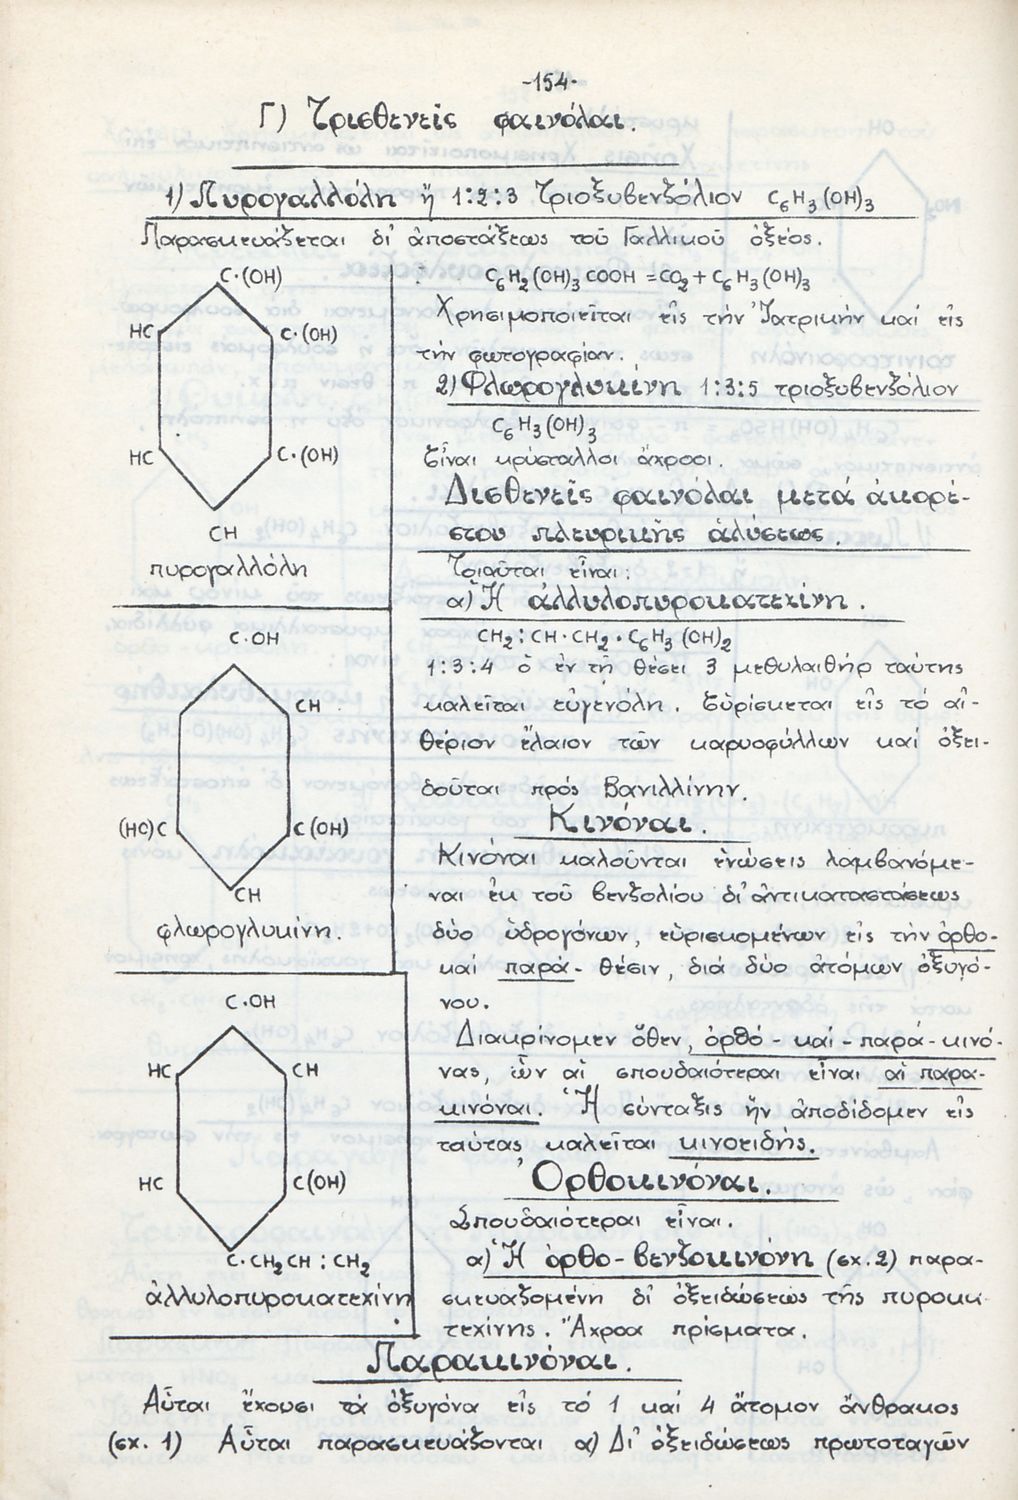 -154-
Γ) Τρισθενείς φαινόλαι.
1) Πυρογαλλόλη ἤ 1:2:3 Τριοξυβενζόλιον C₆H₃(OH)₃
Παρασκευάζεται δι' ἀποστάξεως τοῦ Γαλλικοῦ ὀξέος.
C·(OH)
HC
C·(OH)
HC
C·(OH)
CH
πυρογαλλόλη
C₆H₂(OH)₃COOH = CO₂ + C₆H₃(OH)₃
Χρησιμοποιεῖται εἰς τήν Ἰατρικήν καί εἰς
τήν φωτογραφίαν.
2) Φλωρογλυκίνη 1:3:5 τριοξυβενζόλιον
C₆H₃(OH)₃
Εἶναι κρύσταλλοι ἄχροοι.
Δισθενεῖς φαινόλαι μετά ἀκορέ-
στου πλευρικῆς ἁλύσεως.
Τοιαῦται εἶναι:
α) Ἡ ἀλλυλοπυροκατεχίνη.
CH₂:CH·CH₂·C₆H₃(OH)₂
1:3:4 ὁ ἐν τῇ θέσει 3 μεθυλαιθήρ ταύτης
καλεῖται εὐγενόλη. Εὑρίσκεται εἰς τό αἰ-
θέριον ἔλαιον τῶν καρυοφύλλων καί ὀξει-
δοῦται πρός Βανιλλίνην.
C·OH
CH
(HO)C
C(OH)
CH
φλωρογλυκίνη.
Κινόναι.
Κινόναι καλοῦνται ἑνώσεις λαμβανόμε-
ναι ἐκ τοῦ βενζολίου δι' ἀντικαταστάσεως
δύο ὑδρογόνων, εὑρισκομένων εἰς τήν ὀρθο-
καί παρά- θέσιν, διά δύο ἀτόμων ὀξυγό-
νου.
Διακρίνομεν ὅθεν, ὀρθό-καί-παρά-κινό-
νας, ὧν αἱ σπουδαιότεραι εἶναι αἱ παρα-
κινόναι. Ἡ σύνταξις ἥν ἀποδίδομεν εἰς
ταύτας καλεῖται κινοειδής.
C·OH
HC
CH
HC
C(OH)
C·CH₂CH:CH₂
ἀλλυλοπυροκατεχίνη
Ὀρθοκινόναι.
Σπουδαιότεραι εἶναι.
α) Ἡ ὀρθο-βενζοκινόνη (σχ.2) παρα-
σκευαζομένη δι' ὀξειδώσεως τῆς πυροκα
τεχίνης. Ἄχροα πρίσματα.
Παρακινόναι.
Αὗται ἔχουσι τά ὀξυγόνα εἰς τό 1 καί 4 ἄτομον ἄνθρακος
(σχ. 1) Αὗται παρασκευάζονται α) Δι' ὀξειδώσεως πρωτοταγῶν